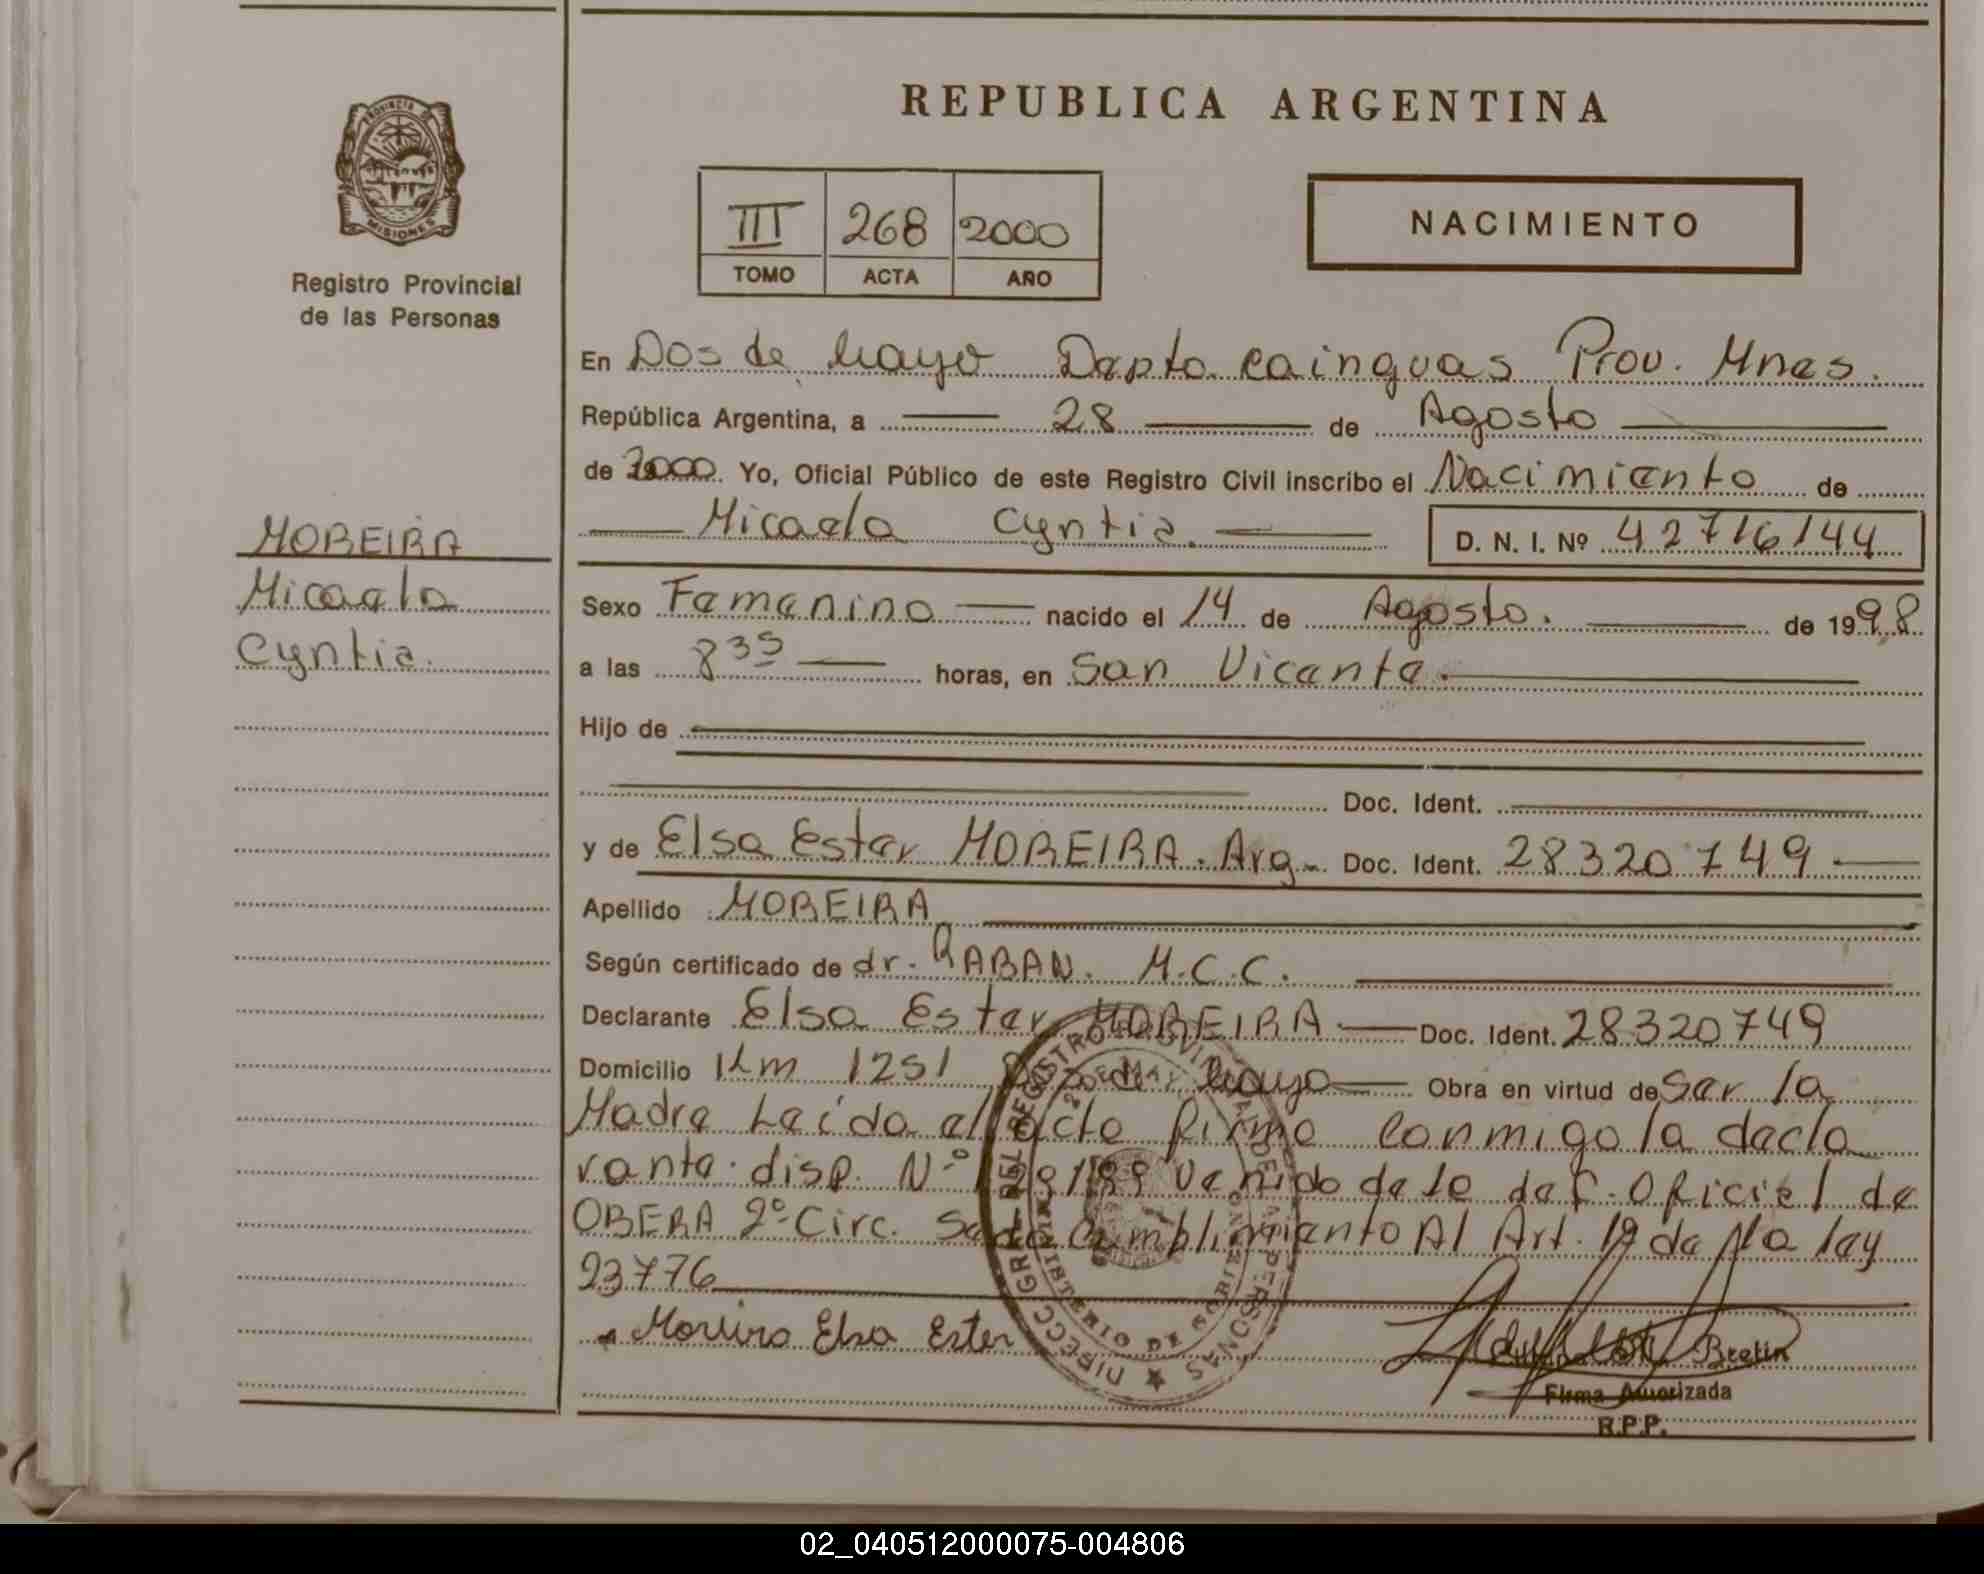 REPUBLICA ARGENTINA
PROVINCIA DE
MISIONES
Registro Provincial
de las Personas
III 268 2000
TOMO ACTA AÑO
NACIMIENTO
En Dos de Mayo Depto cainguas Prov. Mnes.
República Argentina, a 28 de Agosto
de 2000. Yo, Oficial Público de este Registro Civil inscribo el Nacimiento de
Micaela Cyntia. D. N. I. Nº 42716144
MOREIRA
Micaela
Cyntia.
Sexo Femenino nacido el 14 de Agosto. de 1998
a las 8 35 horas, en San Vicente.
Hijo de
Doc. Ident.
y de Elsa Ester MOREIRA. Arg. Doc. Ident. 28320749
Apellido MOREIRA
Según certificado de dr. RABAN. M.C.C.
Declarante Elsa Ester MOREIRA Doc. Ident. 28320749
Domicilio Km 1251 Dos de Mayo Obra en virtud de Ser la
Madre Leída el acta firma conmigo la decla
rante. disp. Nº venido de la def. oficial de
OBERA 2º Circ. Se da cumblimiento Al Art. de la ley
23776
Moreira Elsa Ester
Bretin
Firma Autorizada
R.P.P.
02_040512000075-004806